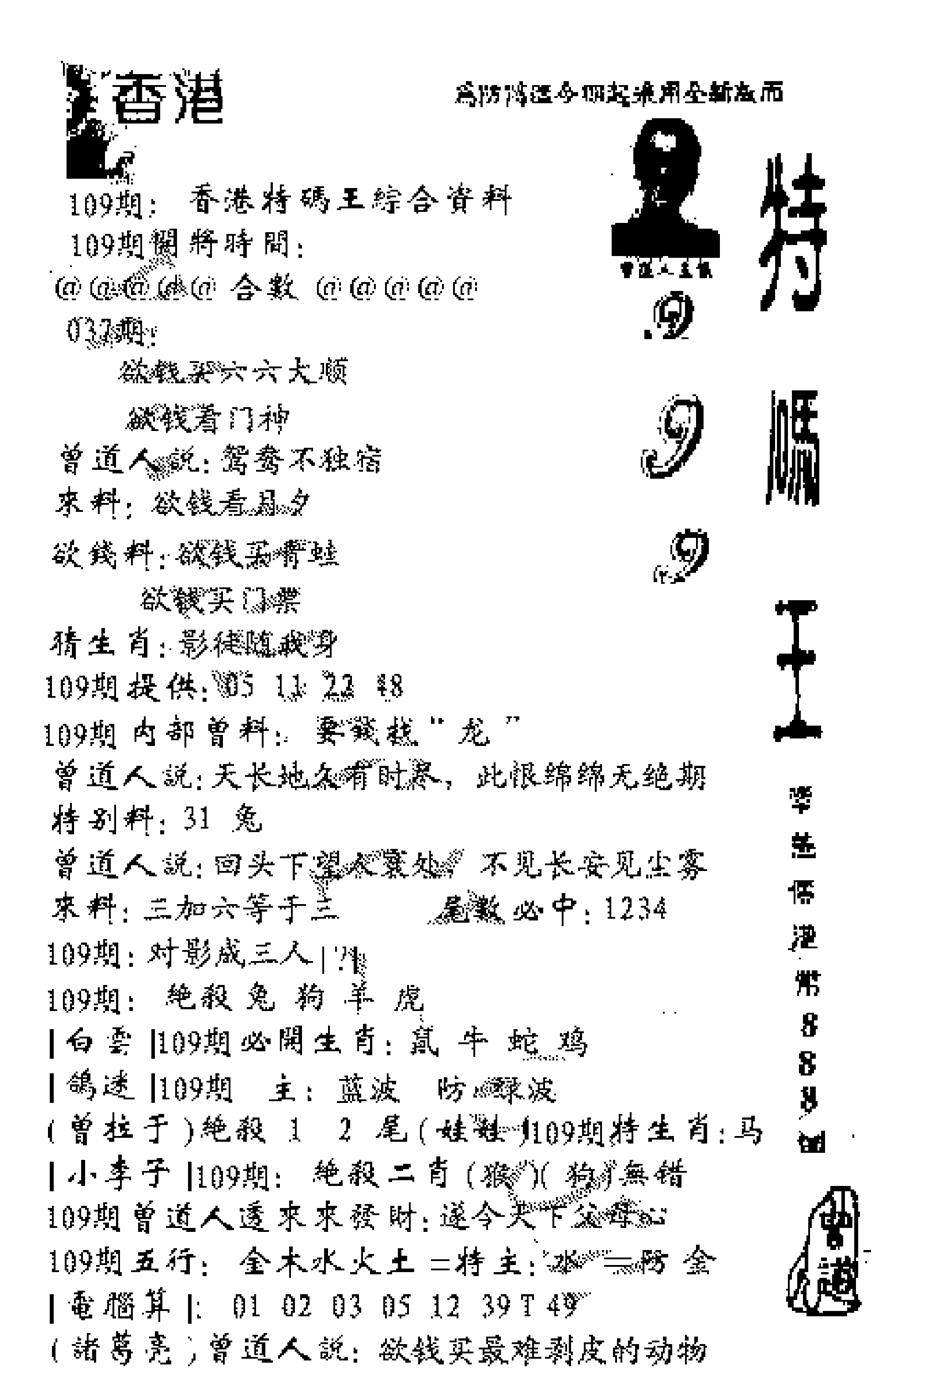 香港
109期: 香港特碼王綜合資料
109期開將時間:
@@@@@ 合數 @@@@@
032期:
欲钱买六六大顺
欲钱看门神
曾道人說: 鸳鸯不独宿
來料: 欲钱看月夕
欲錢料: 欲钱买青蛙
欲钱买门票
猜生肖: 影徒随我身
109期提供: 05 11 22 48
109期内部曾料: 要錢找“龙”
曾道人說: 天长地久有时寒，此恨绵绵无绝期
特别料: 31 兔
曾道人說: 回头下望人寰处，不见长安见尘雾
來料: 三加六等于三 尾數必中: 1234
109期: 对影成三人|?|
109期: 絶殺 兔 狗 羊 虎
|白雲|109期必開生肖: 鼠 牛 蛇 鸡
|鴿迷|109期 主: 蓝波 防 绿波
(曾拉于)绝殺 1 2 尾(娃娃)109期特生肖: 马
|小李子|109期: 絶殺二肖(猴)(狗)無错
109期曾道人透來來發财: 遂令天下父母心
109期五行: 金木水火土=特主: 水=防 金
|電腦算|: 01 02 03 05 12 39T49
(諸葛亮)曾道人說: 欲钱买最难剥皮的动物
曾道人主
9
9
9
特
碼
王
港
幣
8
8
8
曾道